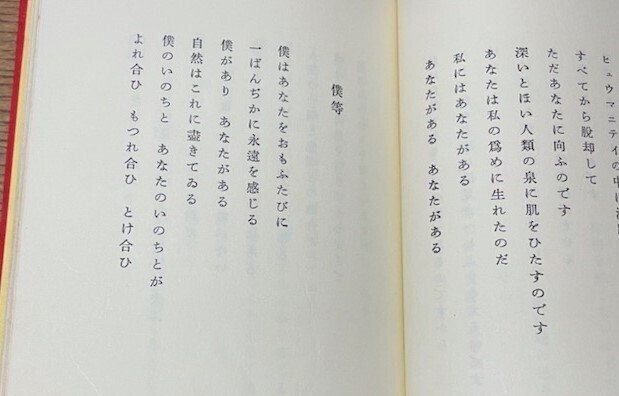 ヒュウマニテイの中に
すべてから脱却して
ただあなたに向ふのです
深いとほい人類の泉に肌をひたすのです
あなたは私の爲めに生れたのだ
私にはあなたがある
あなたがある　あなたがある
僕等
僕はあなたをおもふたびに
一ばんぢかに永遠を感じる
僕があり　あなたがある
自然はこれに盡きてゐる
僕のいのちと　あなたのいのちとが
よれ合ひ　もつれ合ひ　とけ合ひ